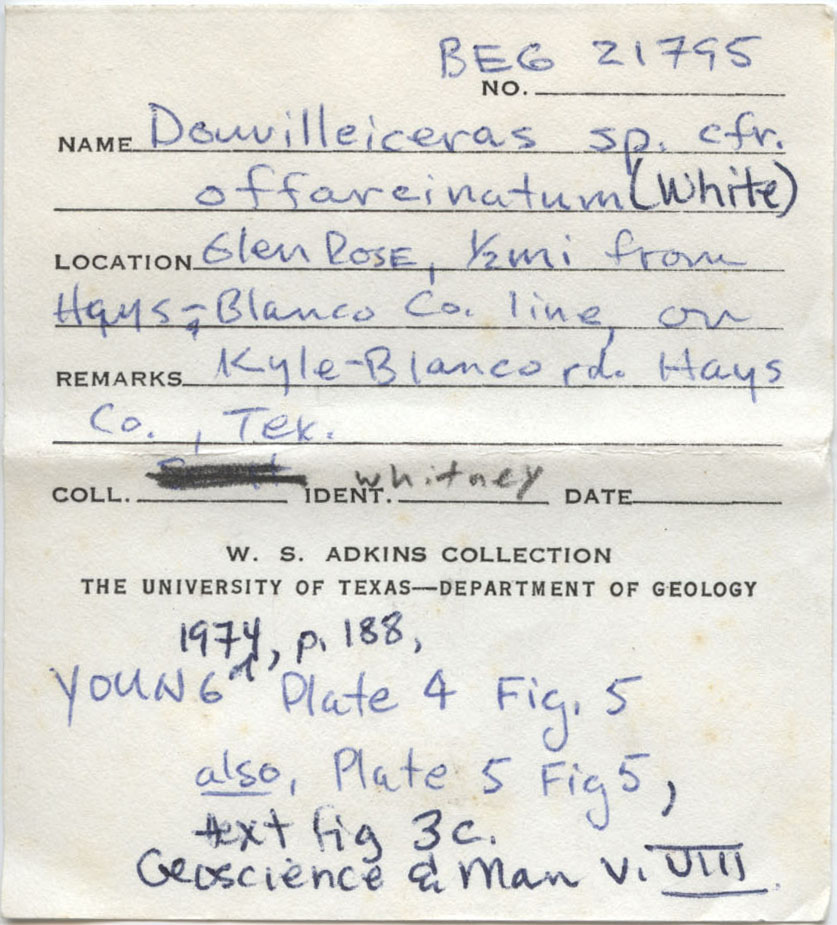 BEG 21795
NO.
NAME Douvilleiceras sp. cfr.
offarcinatum (White)
LOCATION Glen Rose, ½mi from
Hays-Blanco Co. line, on
REMARKS Kyle-Blanco rd. Hays
Co., Tex.
COLL. IDENT. whitney DATE
W. S. ADKINS COLLECTION
THE UNIVERSITY OF TEXAS—DEPARTMENT OF GEOLOGY
1974, p. 188,
YOUNG ^ Plate 4 Fig. 5
also, Plate 5 Fig 5,
text fig 3c.
Geoscience & Man v. VIII